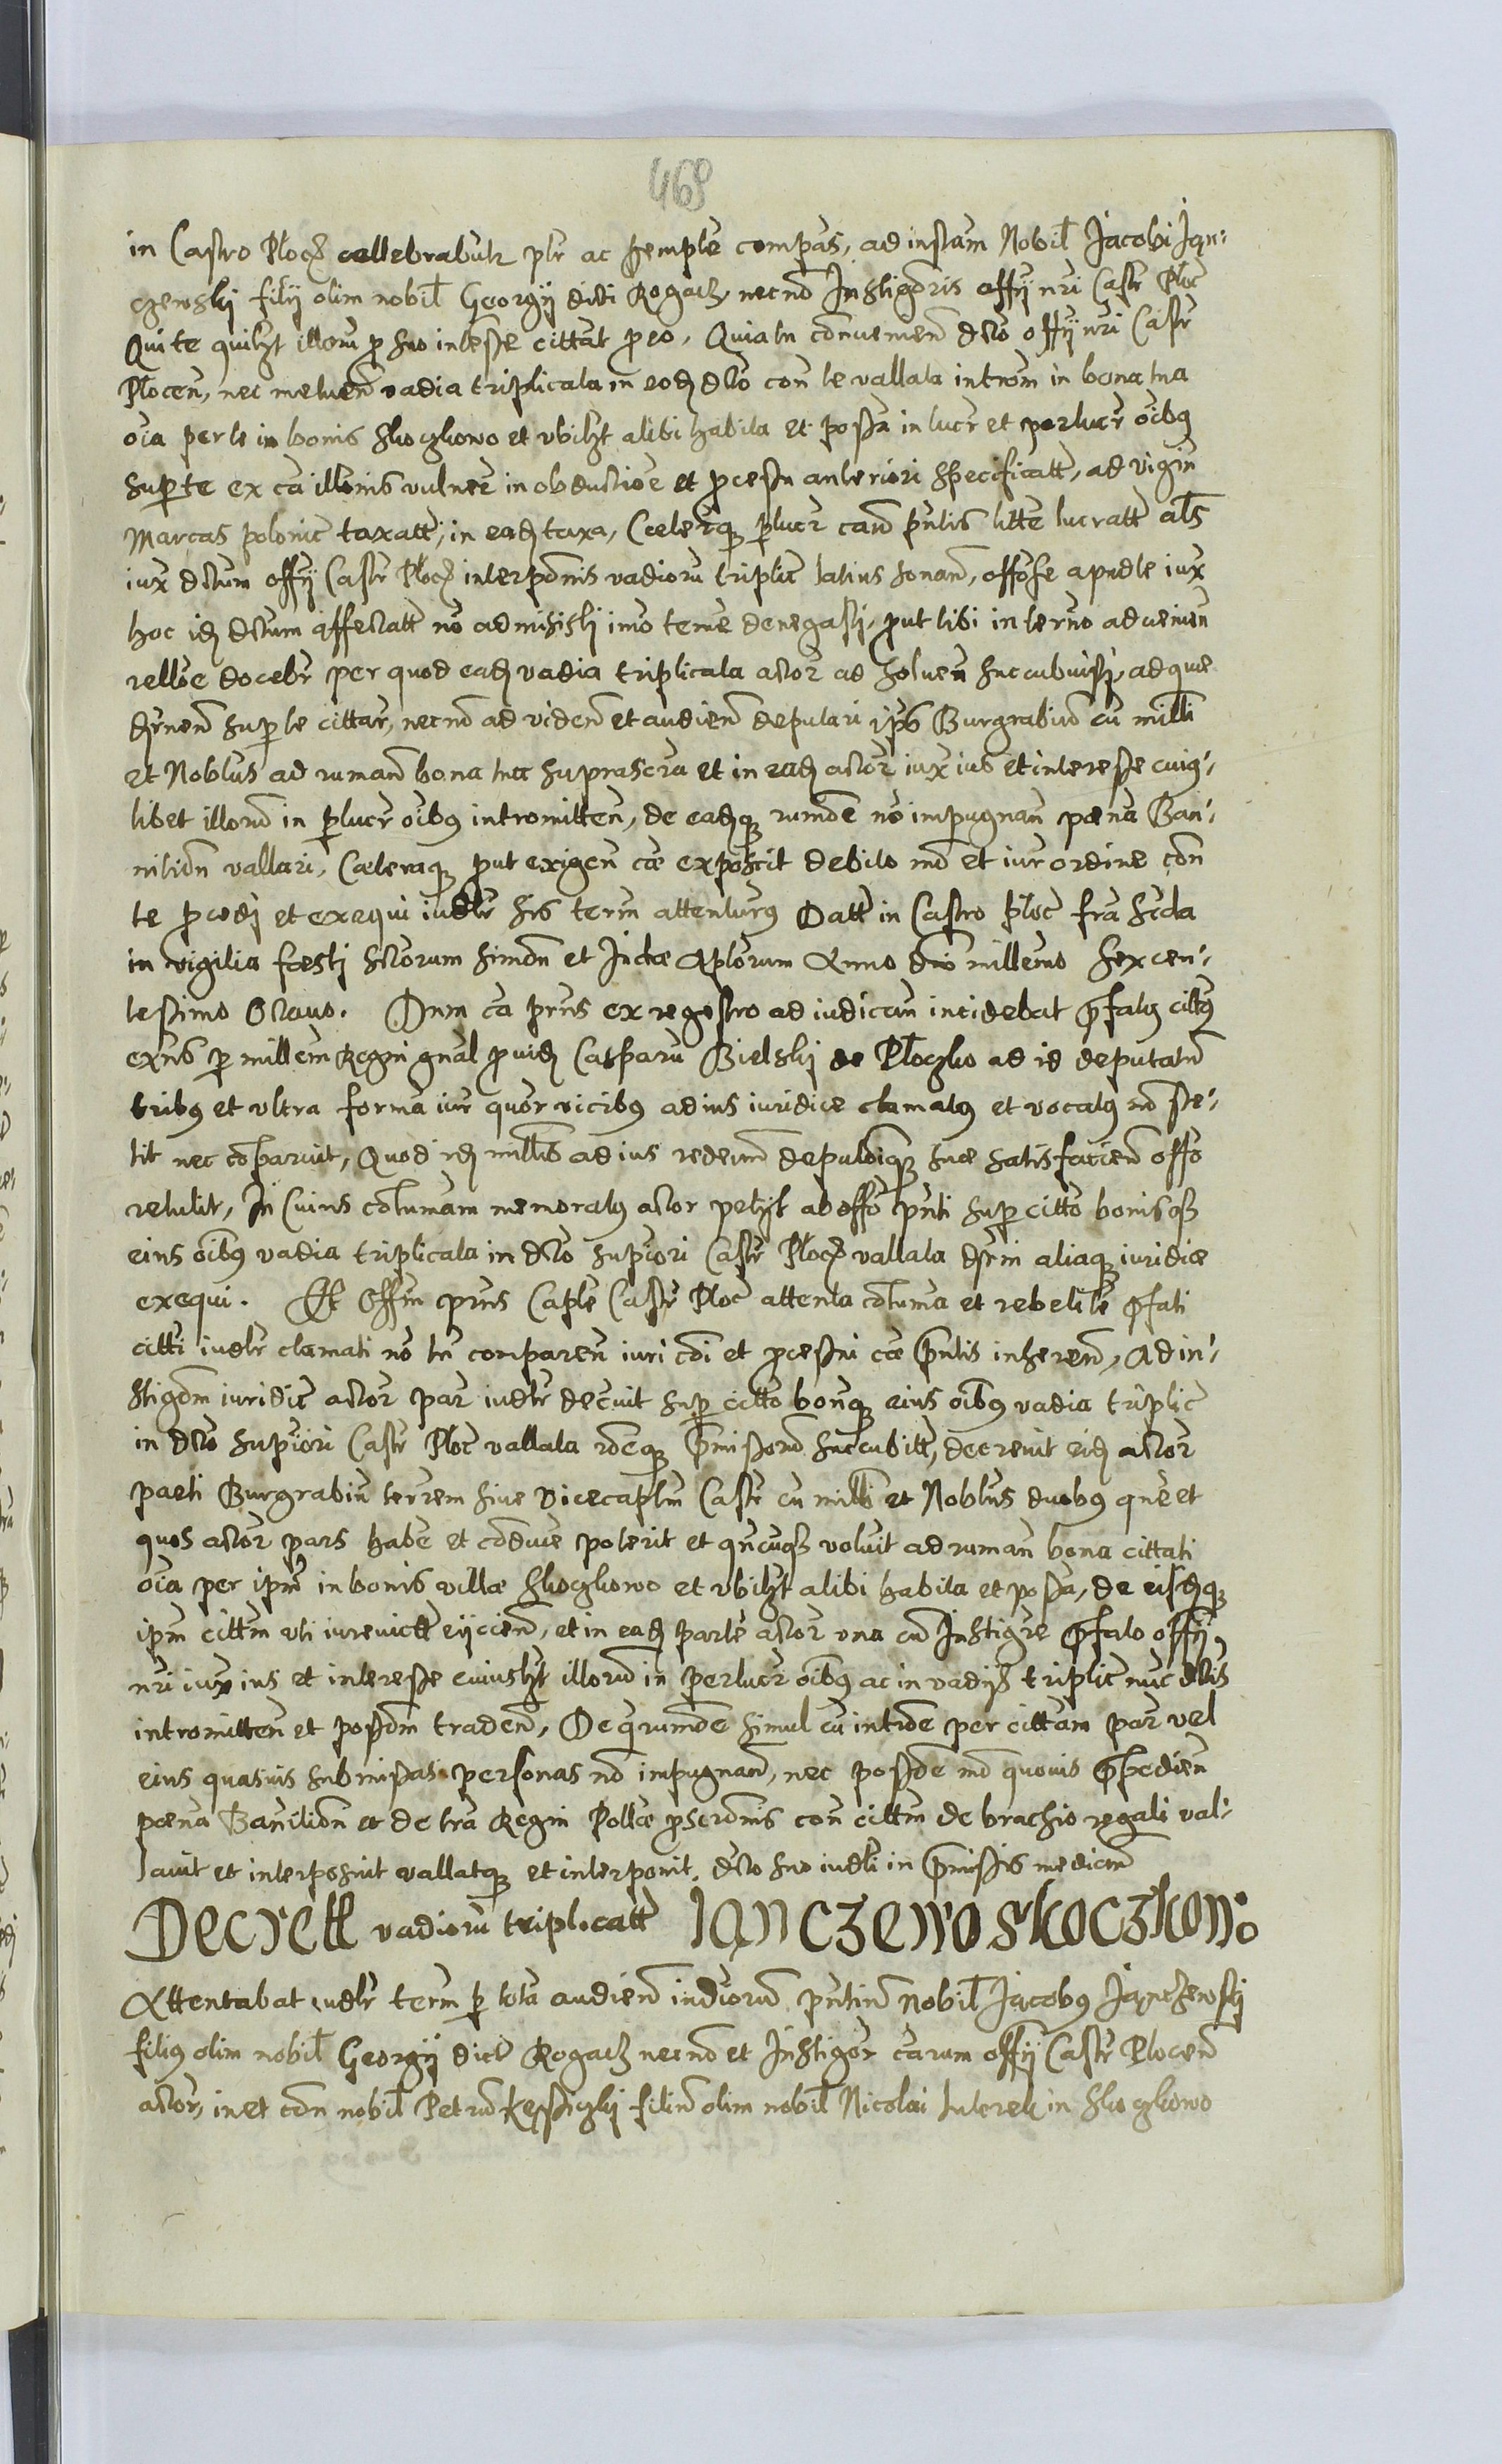 468
in Castro Ploc̄ cellebrabutr plr ac pemple compas, ad instam Nobil Jacobi Jan-
czewskj filij olim nobil Georgij dicti Rogacz, necno Instigoris offij nri Castr Ploc
Qui te quilzt illoru p suo intesse cittat peo, Quia tu convenien dcto offij nri Castr
Plocen, nec metuen vadia triplicata in eod dcto con te vallata introm in bona tua
oia per te in bonis Skoczkowo et vbilzt alibi habita et possa in lucr et perlucr oibus
super te ex ca illonis vulner in obductioe et pcessu anteriori specificatt, ad vigin
Marcas polonic taxatt, in ead taxa, Ceterqz plucr cam pntis litte lucratt als
iux dctum offij Castr Ploc interponis vadioru triplic latius sonan, offose apud te iux
hoc id dctum affectatt no admisisti imo teme denegasti, put tibi in termo advenien
relloe docebr per quod ead vadia triplicata actor ad solven succubuisti, ad que
dcrnen super te cittar, necno ad viden et audien deputari ips Burgrabiu cu milli
et Noblus ad ruman bona tua suprascra et in ead actor iux ius et interesse cuius-
libet illoru in plucr oibus intromitten, de eadqz rumoe no impugnan pœna Ban-
nition vallari, Cæteraqz put exigen cæ exposcit debito mo et iur ordine con
te pcedi et exequi iudlr his term attenturus Datt in Castro Ploc fra scda
in vigilia festi Sctorum Simon et Judæ Aplorum Anno dno millemo sexcen-
tesimo Octavo. Dum ca pnns ex regestro ad iudican incidebat pfatus cittus
exns p millem Regni gnal pvid Casparu Bielskj de Ploczko ad id deputatu
tribus et vltra forma iur quor vicibus ad ius iuridice clamatus et vocatus no ste-
tit nec coparuit, Quod id millis ad ius redeund depuloiqz suæ satisfacien offo
retulit, In Cuius cotumam memoratus actor petijt ab offo pnti super citto bonisqz
eius oibus vadia triplicata in dcto supiori Castr Ploc vallata dcrni aliaqz iuridice
exequi. Et Offm pnns Caple Castr Ploc attenta cotuma et rebelite pfati
citti iudlr clamati no tn comparen iuri coi et pcessui cæ pntis inheren, Ad in-
stigom iuridic actor par iudlr decuit super citto bonqz eius oibus vadia triplic
in dcto supiori Castr Ploc vallata roeqz pmissoru succubitt, decrevit eid actor
parti Burgrabiu terrem sive vicecaplm Castr cu milli et Noblus duobus que et
quos actor pars habe et conduce poterit et qncuqz voluit ad ruman bona cittati
oia per ipm in bonis villæ Skoczkowo et vbilzt alibi habita et possa, de eisdqz
ipm cittm vti iurevictt eijcien, et in ead parte actor vna cu Instigre pfato offij
nri iux ius et interesse cuiuslzt illoru in perlucr oibus ac in vadijs triplic nuc dctis
intromitten et possom traden, De qrumoe simul cu introe per cittam par vel
eius quasvis submissas personas no impugnan, nec possoe mo quovis pedien
pœna Banition et de tra Regni Pollæ pscronis con cittm de brachio regali val-
lavit et interposuit vallatqz et interponit, dcto suo iudli in pmissis median
Decrett vadioru triplicatt Janczewo skoczkow:
Attentabat iudlr term p tota audien indiorum pntium Nobil Jacobus Janczewskj
filius olim nobil Georgij dict Rogacz necno et Instigor carum offij Castr Plocen
actor, in et con nobil Petru Kessiczkj filiu olim nobil Nicolai Luterek in Skoczkowo